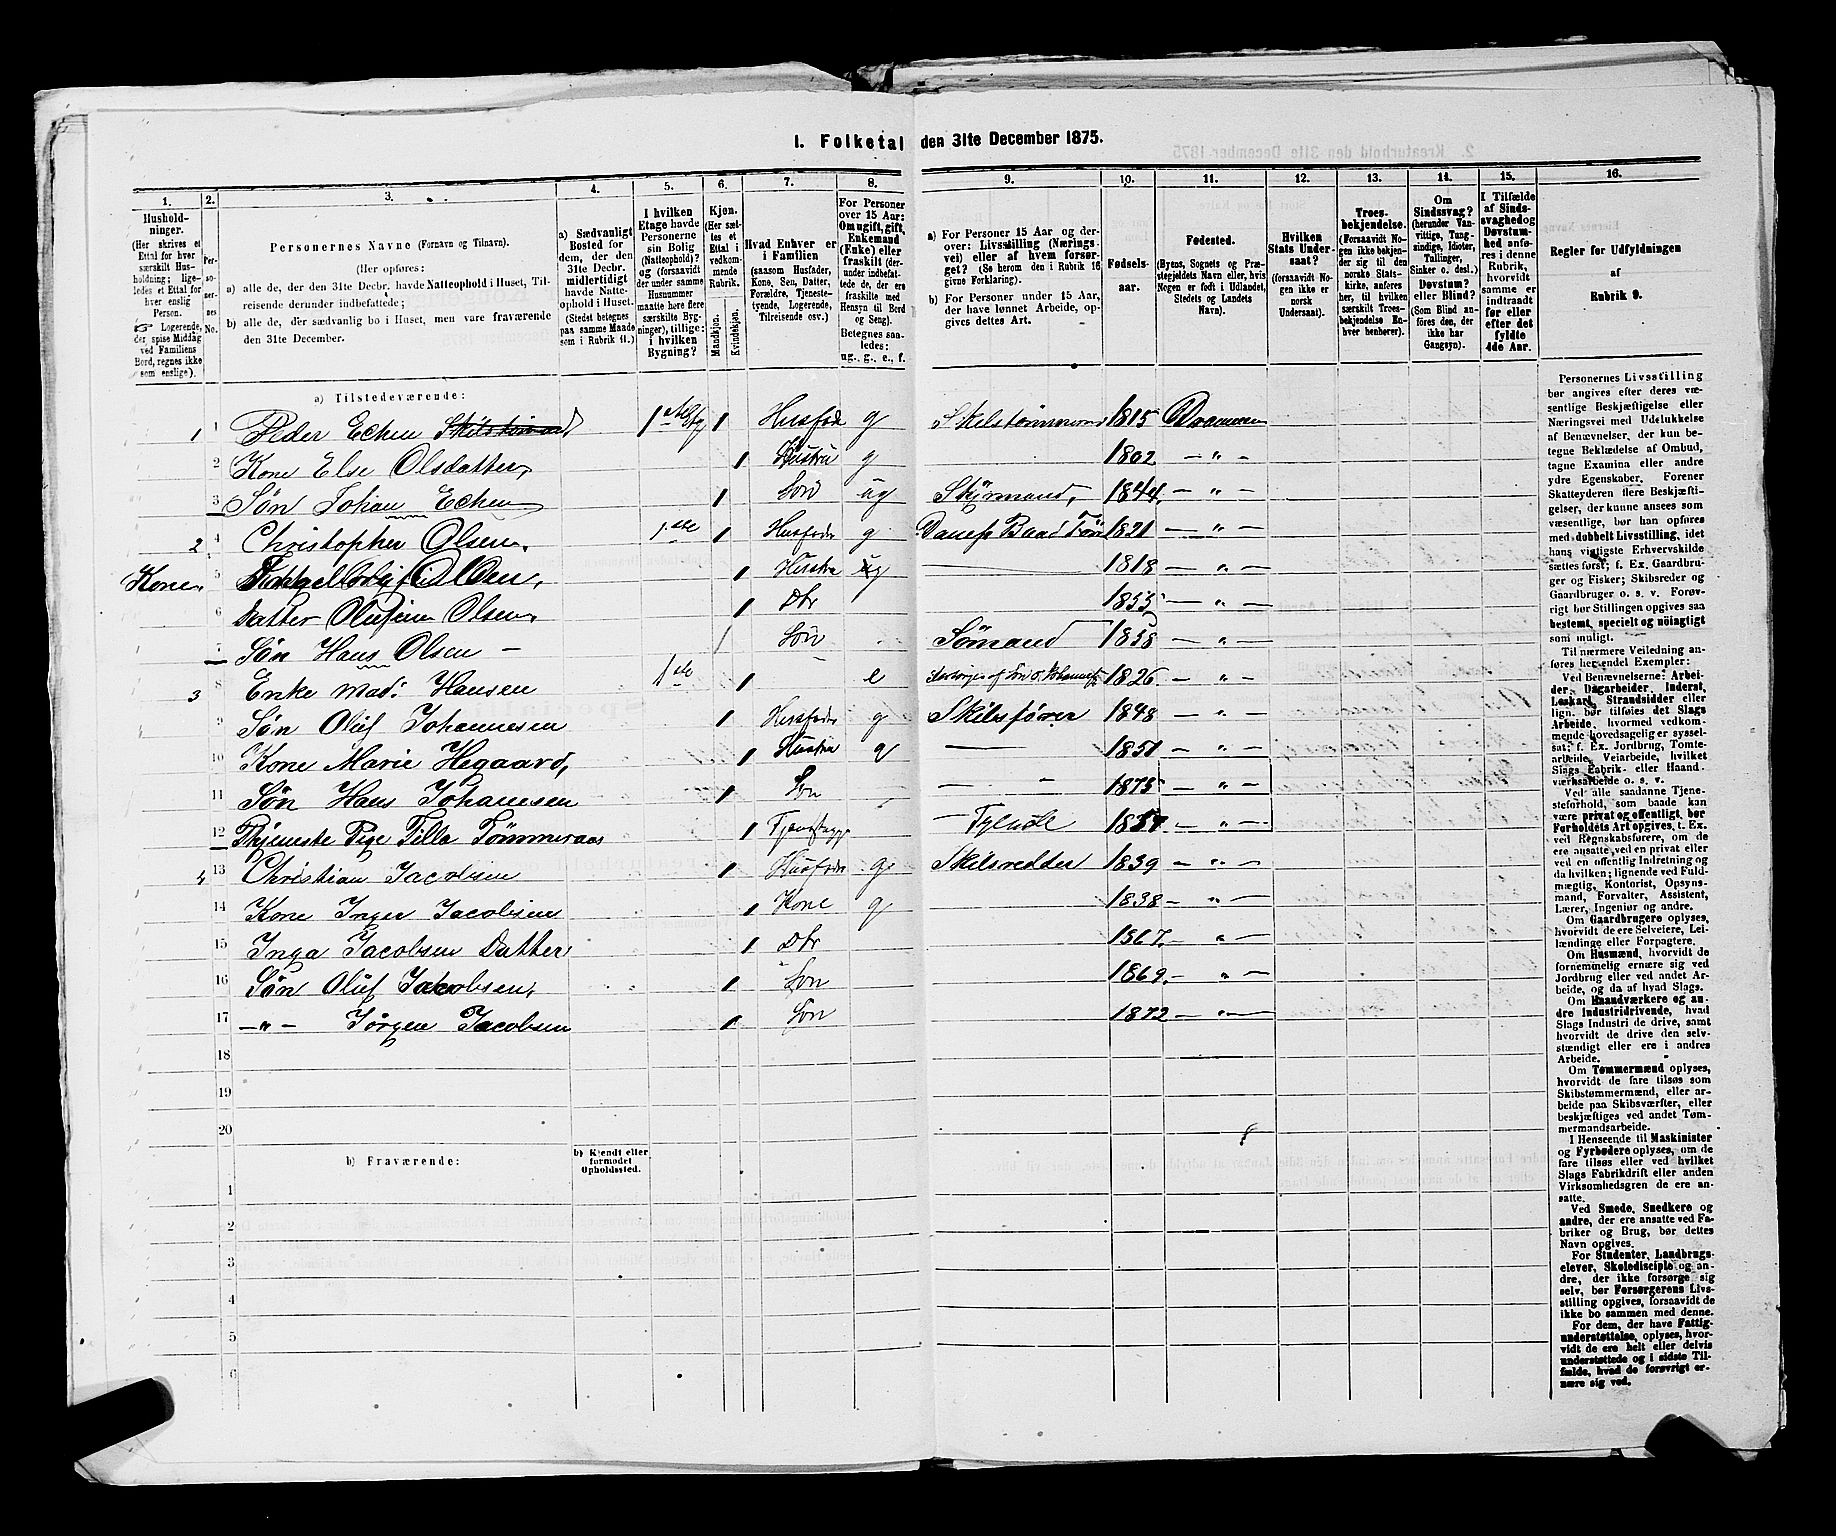 1. Folketal den 31te December 1875.
1. 2. 3. 4. 5. 6. 7. 8. 9. 10. 11. 12. 13. 14. 15. 16.
Hushold-
ninger.
(Her skrives et
Ettal for hver
særskilt Hus-
holdning; lige-
ledes et Ettal for
hver enslig
Person.
☞ Logerende,
der spise Middag
ved Familiens
Bord, regnes ikke
som enslige).
Per-
so-
ner-
nes
No.
Personernes Navne (Fornavn og Tilnavn).
(Her opføres:
a) alle de, der den 31te Decbr. havde Natteophold i Huset, Til-
reisende derunder indbefattede;
b) alle de, der sædvanlig bo i Huset, men vare fraværende
den 31te December.
a) Sædvanligt
Bosted for
dem, der den
31te Decbr.
midlertidigt
havde Natte-
ophold i Huset.
(Stedet betegnes
paa samme Maade
som i Rubrik 11.)
I hvilken
Etage havde
Personerne
sin Bolig
(Natteophold)?
og (forsaavidt
der under samme
Husnummer
maatte here flere
særskilte Byg-
ninger), tillige:
i hvilken
Bygning?
Kjøn.
(Her sæt-
tes et
Ettal i
vedkom-
mende
Rubrik.
Mandkjøn.
Kvindekjøn.
Hvad Enhver er
i Familien
(saasom Husfader,
Kone, Søn, Datter,
Forældre, Tjeneste-
tyende, Logerende,
Tilreisende osv.)
For Personer
over 15 Aar:
Om ugift, gift,
Enkemand
(Enke) eller
fraskilt (der-
under indbefat-
tede de, der ere
fraskilte med
Hensyn til Bord
og Seng).
Betegnes saa-
ledes:
ug., g., e., f.
a) For Personer 15 Aar og der-
over: Livsstilling (Nærings-
vei) eller af hvem forsør-
get? (Se herom den i Rubrik 16
givne Forklaring).
b) For Personer under 15 Aar,
der have lønnet Arbeide, op-
gives dettes Art.
Fødsels-
aar.
Fødested.
(Byens, Sognets og Præ-
stegjeldets Navn eller, hvis
Nogen er født i Udlandet,
Stedets og Landets
Navn).
Hvilken
Stats Under-
saat?
(forsaavidt No-
gen ikke er
norsk
Undersaat).
Troes-
bekjendelse.
(Forsaavidt No-
gen ikke bekjen-
der sig til den
norske Stats-
kirke, anføres
her, til hvilken
særskilt Troes-
bekjendelse En-
hver henhører).
Om
Sindssvag?
(herunder Van-
vittige, Tung-
sindige, Idioter,
Tullinger,
Sinker o. desl.)
Døvstum?
eller Blind?
(Som Blind an-
føres den, der
ikke har
Gangsyn).
I Tilfælde
af Sinds-
svaghed og
Døvstum-
hed anfø-
res i denne
Rubrik,
hvorvidt
samme er
indtraadt
før eller
efter det
fyldte
4de Aar.
Regler for Udfyldningen
af
Rubrik 9.
a) Tilstedeværende:
1 1 Peder Echen 1ste Etg 1 Husfader g Skibstømmermand 1815 Drammen
2 Kone Else Olsdatter, 1 Hustru g 1802 — „ —
3 Søn Johan Echen 1 Søn ug Styrmand, 1844 — „ —
2 4 Christopher Olsen, 1ste 1 Husfader g 1821 — „ —
Kone, 5 1 Hustru g 1818 — „ —
6 Datter Olufine Olsen, 1 Dtr 1855 — „ —
7 Søn Hans Olsen — 1 Søn Sømand 1858 — „ —
3 8 Enke Mad: Hansen 1ste 1 e 1826 — „ —
9 Søn Oluf Johannesen 1 Husfader g Skibsfører 1848 — „ —
10 Kone Marie Hegaard, 1 Hustru g 1851 — „ —
11 Søn Hans Johannesen 1 Søn 1875 — „ —
12 Thjeneste Pige Tilla Tømmeraas 1 Tyende — „ —
4 13 Christian Jacobsen 1 Husfader g. Skibsredder 1839 — „ —
14 Kone Inger Jacobsen 1 Kone g 1838 — „ —
15 Inga Jacobsen Datter 1 Dtr 1867 — „ —
16 Søn Oluf Jacobsen, 1 Søn 1869 — „ —
17 — „ — Jørgen Jacobsen 1 Søn 1872 — „ —
18
19
20
8
b) Fraværende:
b) Kjendt eller
formodet
Opholdssted.
1
2
3
4
5
6
Personernes Livsstilling
bør angives efter deres væ-
sentlige Beskjæftigelse eller
Næringsvei med Udelukkelse
af Benævnelser, der kun be-
tegne Beklædelse af Ombud,
tagne Examina eller andre
ydre Egenskaber. Forener
Skatteyderen flere Beskjæfti-
gelser, der kunne ansees som
væsentlige, bør han opføres
med dobbelt Livsstilling, idet
hans vigtigste Erhvervskilde
sættes først; f. Ex. Gaardbru-
ger og Fisker; Skibsreder og
Gaardbruger o. s. v. Forøv-
rigt bør Stillingen opgives saa
bestemt, specielt og nöiagtigt
som muligt.
Til nærmere Veiledning an-
føres her endel Exempler:
Ved Benævnelserne: Arbei-
der, Dagarbeider, Inderst,
Løskarl, Strandsidder eller
lign. bør tilføies det Slags
Arbeide, hvormed vedkom-
mende hovedsagelig er syssel-
sat; f. Ex. Jordbrug, Tomte-
arbeide, Veiarbeide, hvilket
Slags Fabrik- eller Haand-
værksarbeide o. s. v.
Ved alle saadanne Tjene-
steforhold, som baade kan
være privat og offentligt, bør
Forholdets Art opgives, t. Ex.
ved Regnskabsførere, om de
ere ansatte ved en privat eller
ved en offentlig Indretning og
da hvilken; lignende ved Fuld-
mægtig, Kontorist, Opsyns-
mand, Forvalter, Assistent,
Lærer, Ingeniør og andre.
Om Gaardbrugere oplyses,
hvorvidt de ere Selveiere, Lei-
lændinge eller Forpagtere.
Om Husmænd, hvorvidt de
fornemmelig ernære sig ved
Jordbrug eller ved andet Ar-
beide, og da af hvad Slags.
Om Haandværkere og an-
dre Industridrivende, hvad
Slags Industri de drive, samt
hvorvidt de drive den selv-
stændigt eller ere i andres
Arbeide.
Om Tømmermænd oplyses,
hvorvidt de fare tilsøs som
Skibstømmermænd, eller ar-
beide paa Skibsværfter, eller
beskjæftiges ved andet Tøm-
mermandsarbeide.
I Henseende til Maskinister
og Fyrbødere oplyses, om de
fare tilsøs eller ved hvilket
Slags Fabrikdrift eller anden
Virksomhedsgren de ere an-
satte.
Ved Smede, Snedkere og
andre, der ere ansatte ved Fa-
briker og Brug, bør dettes
Navn opgives.
For Studenter, Landbrugs-
elever, Skoledisciple og an-
dre, der ikke forsørge sig
selv, bør Forsørgerens Livs-
stilling opgives, forsaavidt de
ikke bo sammen med denne.
For dem, der have Fattig-
understøttelse, oplyses, hvor-
vidt de ere helt eller delvis
understøttede og i sidste Til-
fælde, hvad de forøvrigt er-
nære sig ved.